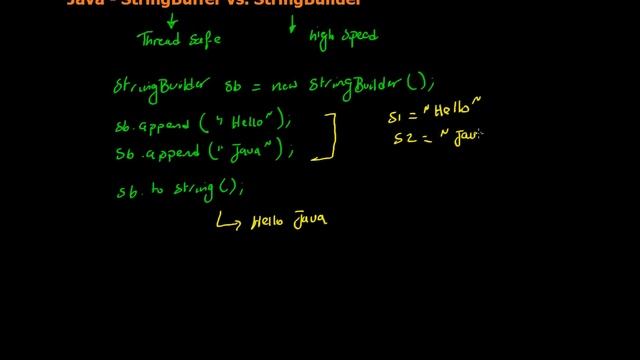 Java - StringBuffer vs. StringBuilder
Thread Safe
High Speed
StringBuilder sb = new StringBuilder();
sb.append("Hello");
sb.append("Java");
sb.to String();
Hello Java
S1 = "Hello"
S2 = "Java